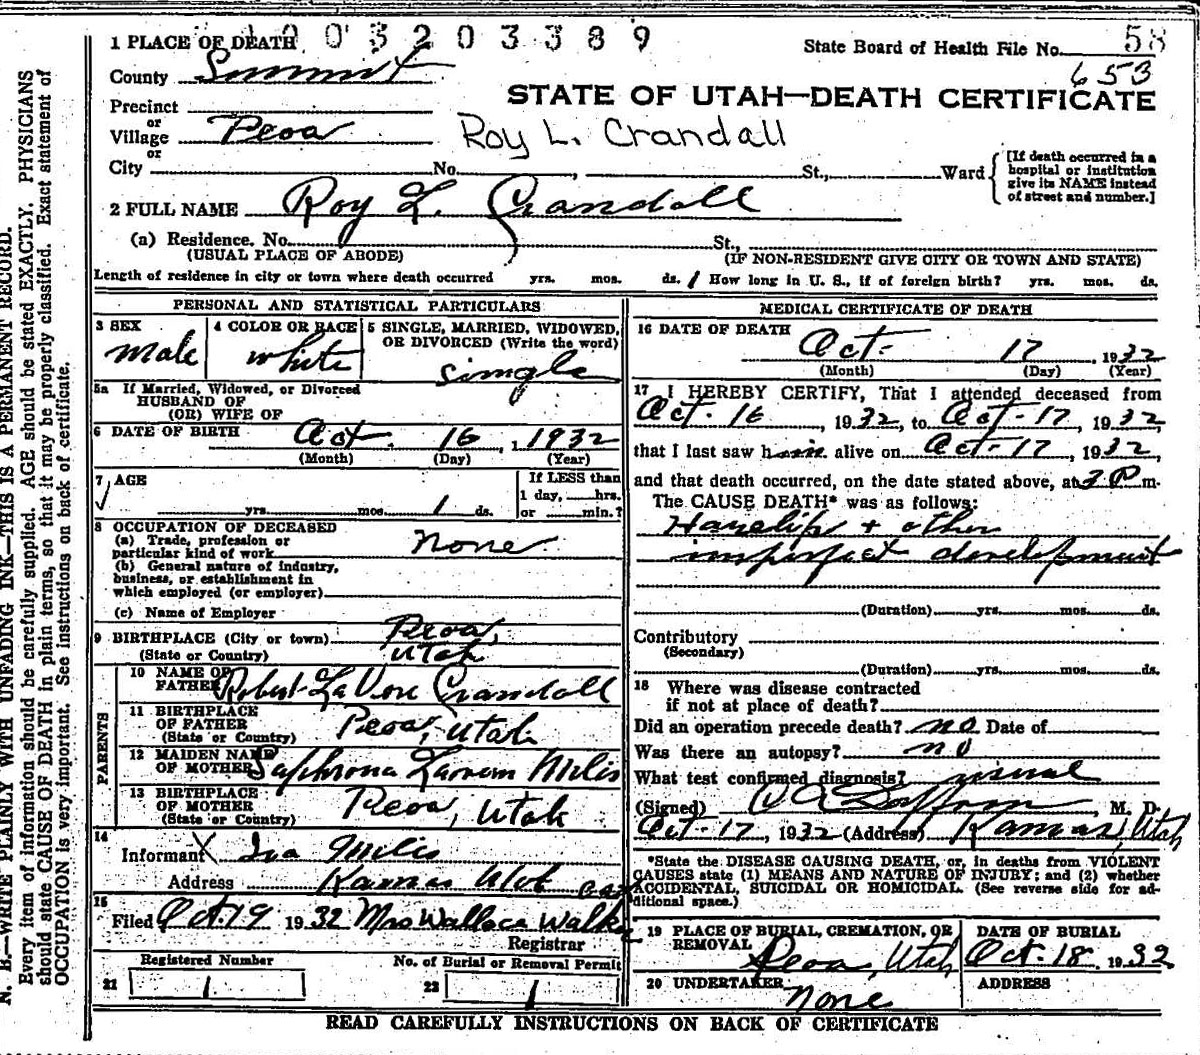 1 PLACE OF DEATH 1 0 0 3 2 0 3 3 8 9
State Board of Health File No. 58
653
County Summit
STATE OF UTAH—DEATH CERTIFICATE
Precinct
or
Village Peoa
Roy L. Crandall
or
City No. , St., Ward
[If death occurred in a
hospital or institution
give its NAME instead
of street and number.]
2 FULL NAME Roy L. Crandall
(a) Residence. No. St.,
(USUAL PLACE OF ABODE) (IF NON-RESIDENT GIVE CITY OR TOWN AND STATE)
Length of residence in city or town where death occurred yrs. mos. ds. / How long in U. S., if of foreign birth? yrs. mos. ds.
PERSONAL AND STATISTICAL PARTICULARS
3 SEX
Male
4 COLOR OR RACE
white
5 SINGLE, MARRIED, WIDOWED,
OR DIVORCED (Write the word)
single
5a If Married, Widowed, or Divorced
HUSBAND OF
(OR) WIFE OF
6 DATE OF BIRTH Oct. 16, 1932
(Month) (Day) (Year)
7 AGE
yrs. mos. 1 ds.
If LESS than
1 day, hrs.
or min.?
8 OCCUPATION OF DECEASED
(a) Trade, profession or
particular kind of work none
(b) General nature of industry,
business, or establishment in
which employed (or employer)
(c) Name of Employer
9 BIRTHPLACE (City or town) Peoa,
(State or Country) Utah
PARENTS
10 NAME OF
FATHER Robert LaVon Crandall
11 BIRTHPLACE
OF FATHER
(State or Country) Peoa, Utah
12 MAIDEN NAME
OF MOTHER Saphrona Milis
13 BIRTHPLACE
OF MOTHER
(State or Country) Peoa, Utah
14
Informant X Iva Milis
Address Kamas Utah
15
Filed Oct. 19 1932 Mrs Wallace Walker
Registrar
Registered Number
21 1
No. of Burial or Removal Permit
22 1
MEDICAL CERTIFICATE OF DEATH
16 DATE OF DEATH
Oct. 17, 1932
(Month) (Day) (Year)
17 I HEREBY CERTIFY, That I attended deceased from
Oct. 16, 1932, to Oct. 17, 1932,
that I last saw him alive on Oct. 17, 1932,
and that death occurred, on the date stated above, at 3 P m.
The CAUSE DEATH* was as follows:
Harelip + other
imperfect development
(Duration) yrs. mos. ds.
Contributory
(Secondary)
(Duration) yrs. mos. ds.
18 Where was disease contracted
if not at place of death?
Did an operation precede death? no Date of
Was there an autopsy? no
What test confirmed diagnosis? visual
(Signed) M. D.
Oct. 17, 1932 (Address) Kamas, Utah
*State the DISEASE CAUSING DEATH, or, in deaths from VIOLENT
CAUSES state (1) MEANS AND NATURE OF INJURY; and (2) whether
ACCIDENTAL, SUICIDAL OR HOMICIDAL. (See reverse side for ad-
ditional space.)
19 PLACE OF BURIAL, CREMATION, OR
REMOVAL
Peoa, Utah
DATE OF BURIAL
Oct. 18, 1932
20 UNDERTAKER
none
ADDRESS
READ CAREFULLY INSTRUCTIONS ON BACK OF CERTIFICATE
N. B.—WRITE PLAINLY WITH UNFADING INK—THIS IS A PERMANENT RECORD.
Every item of information should be carefully supplied. AGE should be stated EXACTLY. PHYSICIANS
should state CAUSE OF DEATH in plain terms, so that it may be properly classified. Exact statement of
OCCUPATION is very important. See instructions on back of certificate.